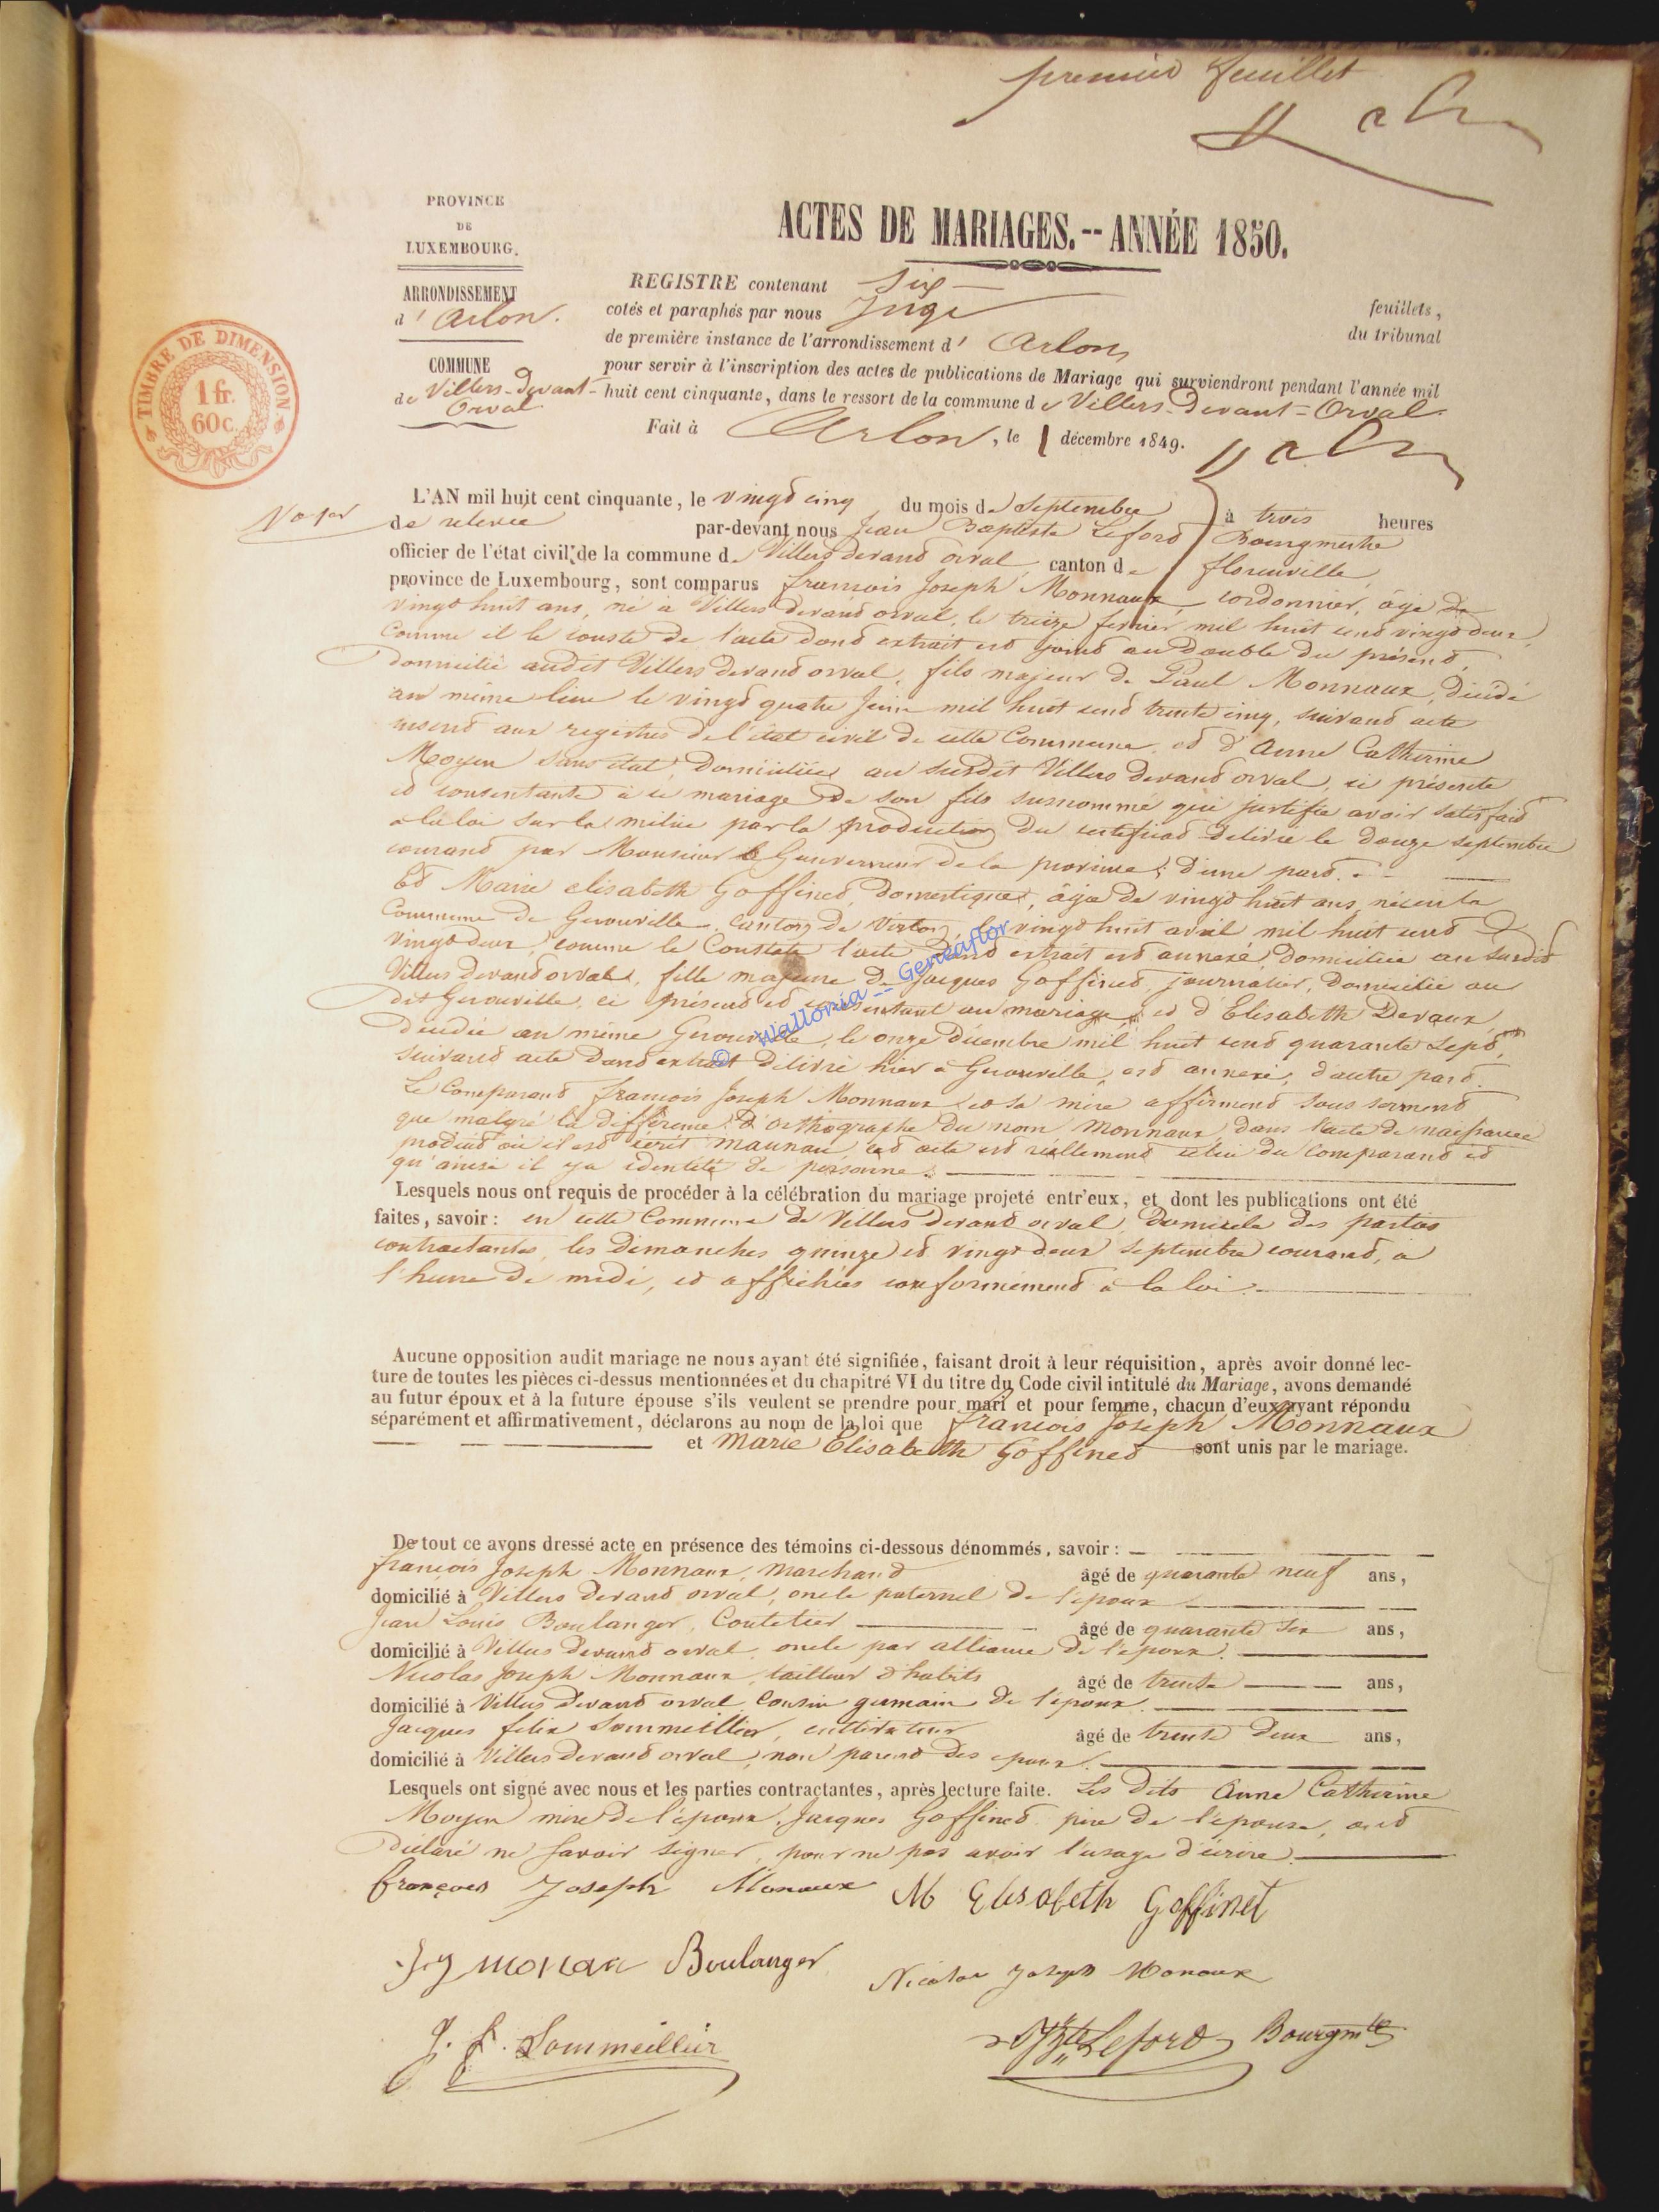 premier feuillet
PROVINCE
DE
LUXEMBOURG.
ARRONDISSEMENT
d'Arlon.
COMMUNE
de Villers-devant-
Orval
TIMBRE DE DIMENSION
1 fr.
60 c.
ACTES DE MARIAGES.-- ANNÉE 1850.
REGISTRE contenant six feuillets,
cotés et paraphés par nous Juge du tribunal
de première instance de l'arrondissement d' Arlon
pour servir à l'inscription des actes de publications de Mariage qui surviendront pendant l'année mil
huit cent cinquante, dans le ressort de la commune de Villers-devant-Orval.
Fait à Arlon, le 1 décembre 1849.
No 1er
L'AN mil huit cent cinquante, le vingt cinq du mois de Septembre à trois heures
de relevée par-devant nous Jean Baptiste Lefort Bourgmestre
officier de l'état civil de la commune de Villers devant orval canton de florenville,
province de Luxembourg, sont comparus francois Joseph Monnaux, cordonnier, âgé de
vingt huit ans, né à Villers devant orval, le treize fevrier mil huit cent vingt deux,
comme il le conste de l'acte dont extrait est joint au double du présent,
domicilié audit Villers devant orval, fils majeur de Paul Monnaux, décédé
au même lieu le vingt quatre Juin mil huit cent trente cinq, suivant acte
inseré aux registres de l'état civil de cette Commune, et d'Anne Catherine
Moyen sans état, domiciliée au susdit Villers devant orval, ci présente
et consentante à ce mariage de son fils susnommé qui justifie avoir satisfait
a la loi sur la milice par la production du certificat delivré le douze septembre
courant par Monsieur le Gouverneur de la province; d'une part.
Et Marie elisabeth Goffinet, domestique, âgée de vingt huit ans, née en la
Commune de Gerouville, Canton de Virton, le vingt huit avril mil huit cent
vingt deux, comme le Constate l'acte dont extrait est annexé, domiciliée au susdit
Villers devant orval, fille majeure de Jacques Goffinet, journalier, domicilié au
dit Gerouville, ci présent et consentant au mariage, et d'Elisabeth Devaux
décédée au même Gerouville, le onze décembre mil huit cent quarante sept,
suivant acte dont extrait délivré hier à Gerouville, est annexé, d'autre part.
Le Comparant francois Joseph Monnaux et sa mère affirment sous serment
que malgré la différence d'orthographe du nom Monnaux, dans l'acte de naissance
produit où il est écrit maunau, cet acte est réellement celui du comparant et
qu'ainsi il y a identité de personne.
Lesquels nous ont requis de procéder à la célébration du mariage projeté entr'eux, et dont les publications ont été
faites, savoir: en cette Commune de Villers devant orval, domicile des parties
contractantes, les dimanches quinze et vingt deux septembre courant, à
l'heure de midi, et affichées conformément à la loi.
Aucune opposition audit mariage ne nous ayant été signifiée, faisant droit à leur réquisition, après avoir donné lec-
ture de toutes les pièces ci-dessus mentionnées et du chapitré VI du titre du Code civil intitulé du Mariage, avons demandé
au futur époux et à la future épouse s'ils veulent se prendre pour mari et pour femme, chacun d'eux ayant répondu
séparément et affirmativement, déclarons au nom de la loi que francois Joseph Monnaux
et Marie Elisabeth Goffinet sont unis par le mariage.
De tout ce avons dressé acte en présence des témoins ci-dessous dénommés, savoir:
françois Joseph Monnaux, marchand âgé de quarante neuf ans,
domicilié à Villers devant orval, oncle paternel de l'époux
Jean Louis Boulanger, Coutelier âgé de quarante six ans,
domicilié à Villers devant orval, oncle par alliance de l'époux.
Nicolas Joseph Monnaux, tailleur d'habits âgé de trente ans,
domicilié à Villers devant orval, Cousin germain de l'époux.
Jacques felix Sommeillier, cultivateur âgé de trente deux ans,
domicilié à Villers devant orval, non parent des epoux.
Lesquels ont signé avec nous et les parties contractantes, après lecture faite. Les dits Anne Catherine
Moyen mère de l'époux, Jacques Goffinet père de l'épouse, ont
déclaré ne savoir signer, pour ne pas avoir l'usage d'écrire.
françois Joseph Monaux M Elisabeth Goffinet
Boulanger Nicolas Joseph Monaux
J. f. Sommeillier Lefort Bourgmtre
© Walloria -- Geneaflor